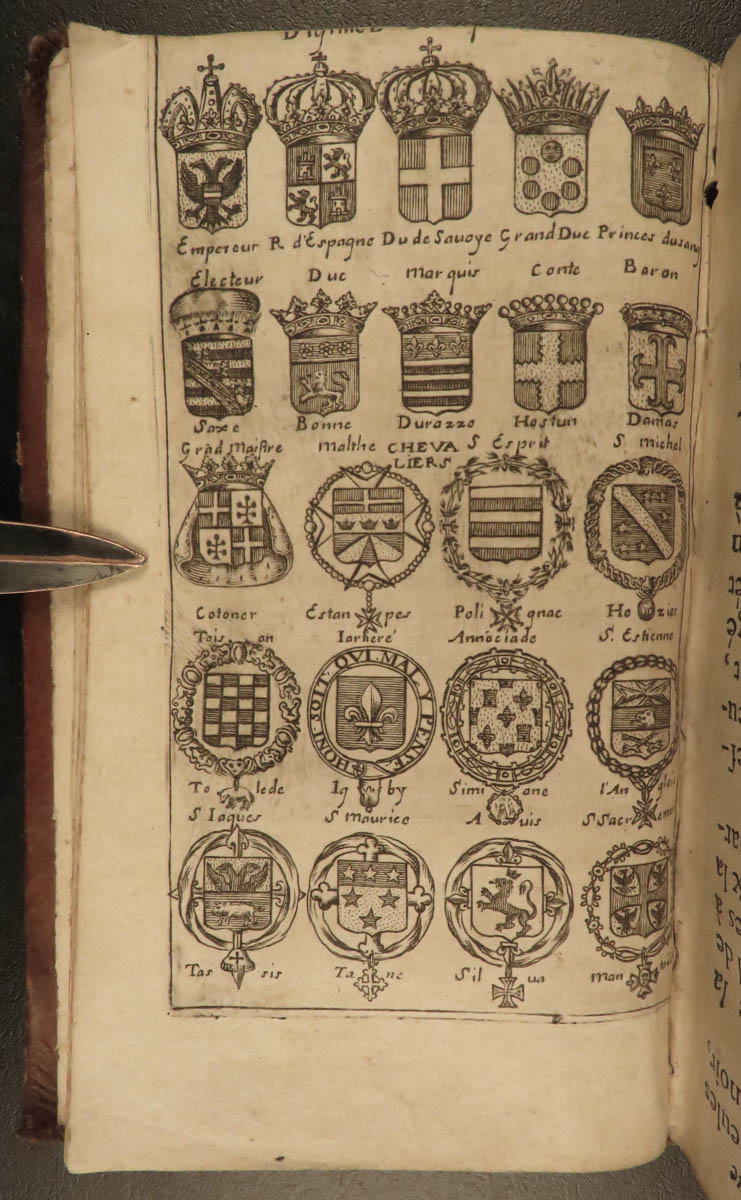 Empereur R d'Espagne Du de Sauoye Grand Duc Princes dusang
Electeur Duc Marquis Conte Baron
Saxe Bonne Durazzo Hostun Damas
Grãd Maistre Malthe CHEVA S Esprit S michel
LIERS
Cotoner Estan pes Poli gnac Ho zier
Tois on Iartieré Annociade S. Estienne
HONI SOIT QVI MAL Y PENSE
To lede Ig by Simi ane l'An glois
S Iaques S Maurice A uis S Sacr
Tas sis Ta ne Sil ua man